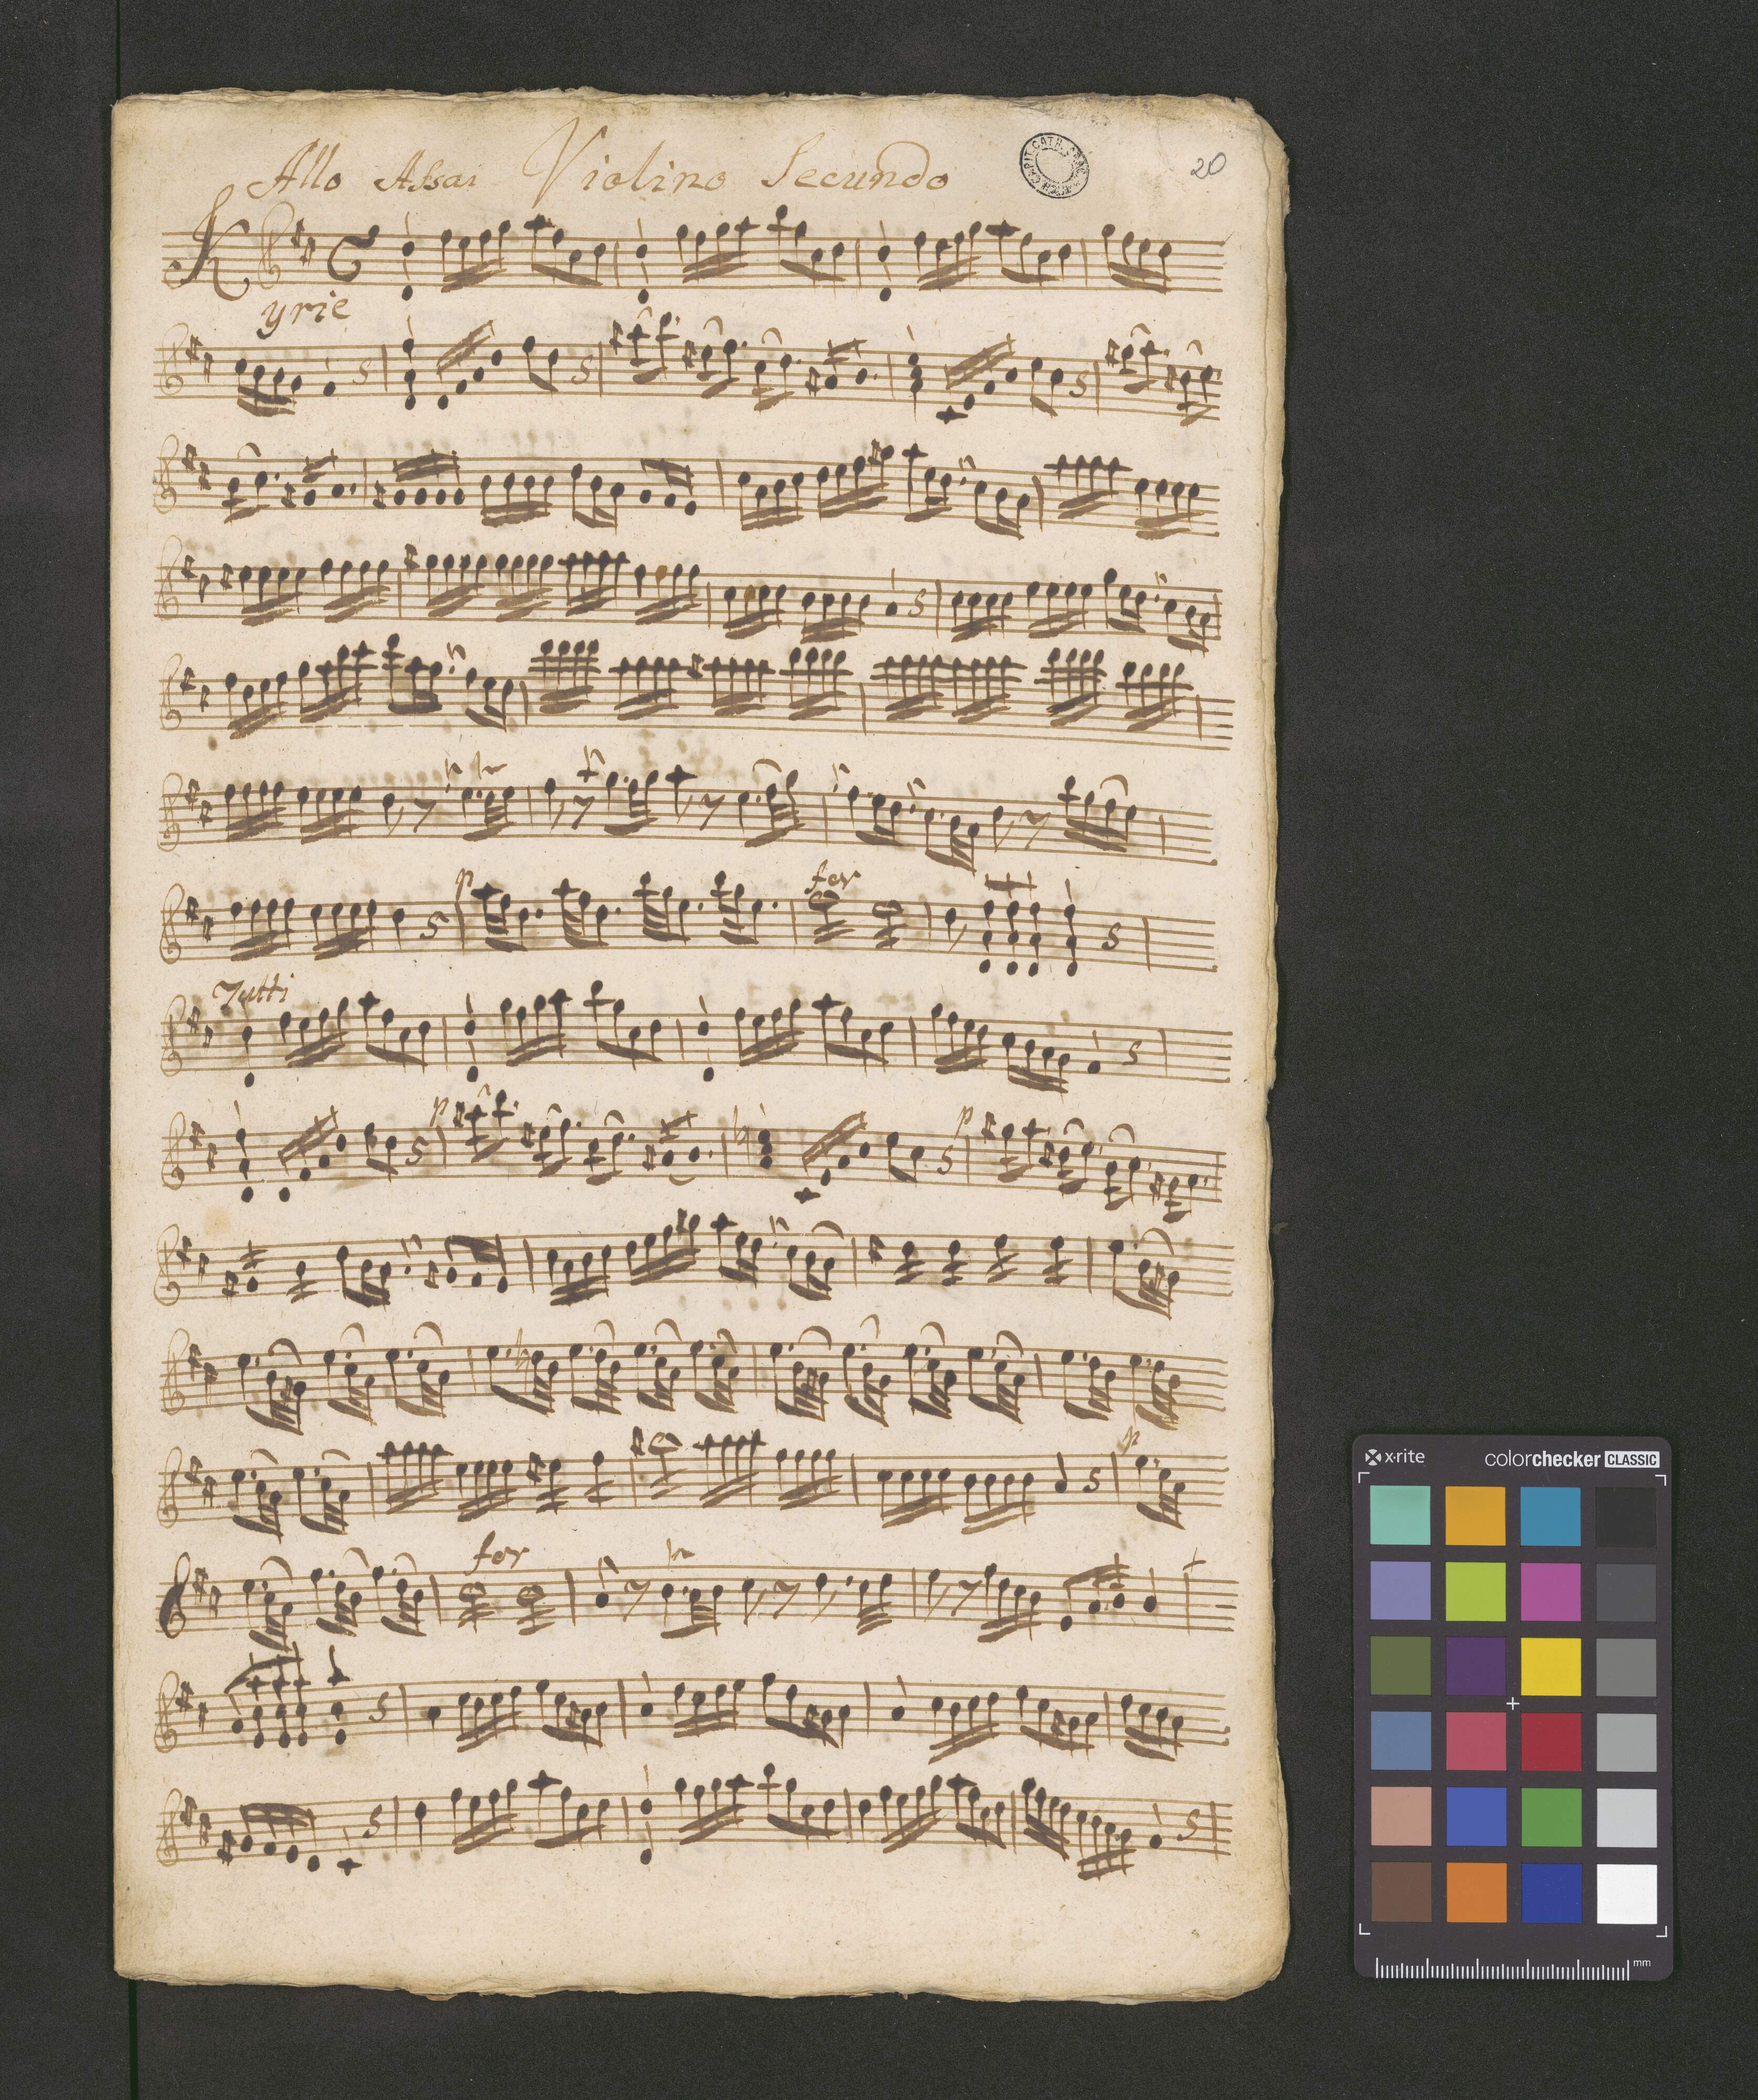 Allo Assai Violino Secundo 20
Kyrie
p for
Tutti
p p
p
for
x-rite colorchecker CLASSIC
mm